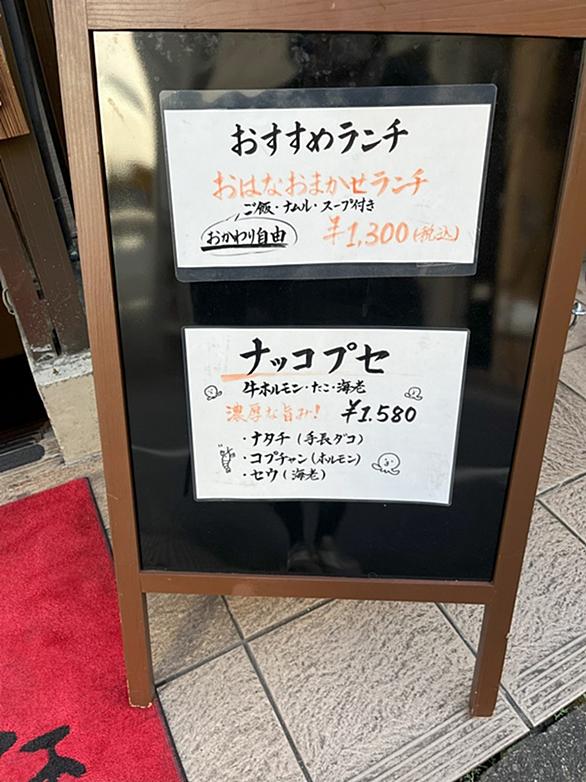 おすすめランチ
おはなおまかせランチ
ご飯・ナムル・スープ付き
おかわり自由
¥1,300(税込)
ナッコプセ
牛ホルモン・たこ・海老
濃厚な旨み!
¥1.580
・ナタチ(手長ダコ)
・コプチャン(ホルモン)
・セウ(海老)